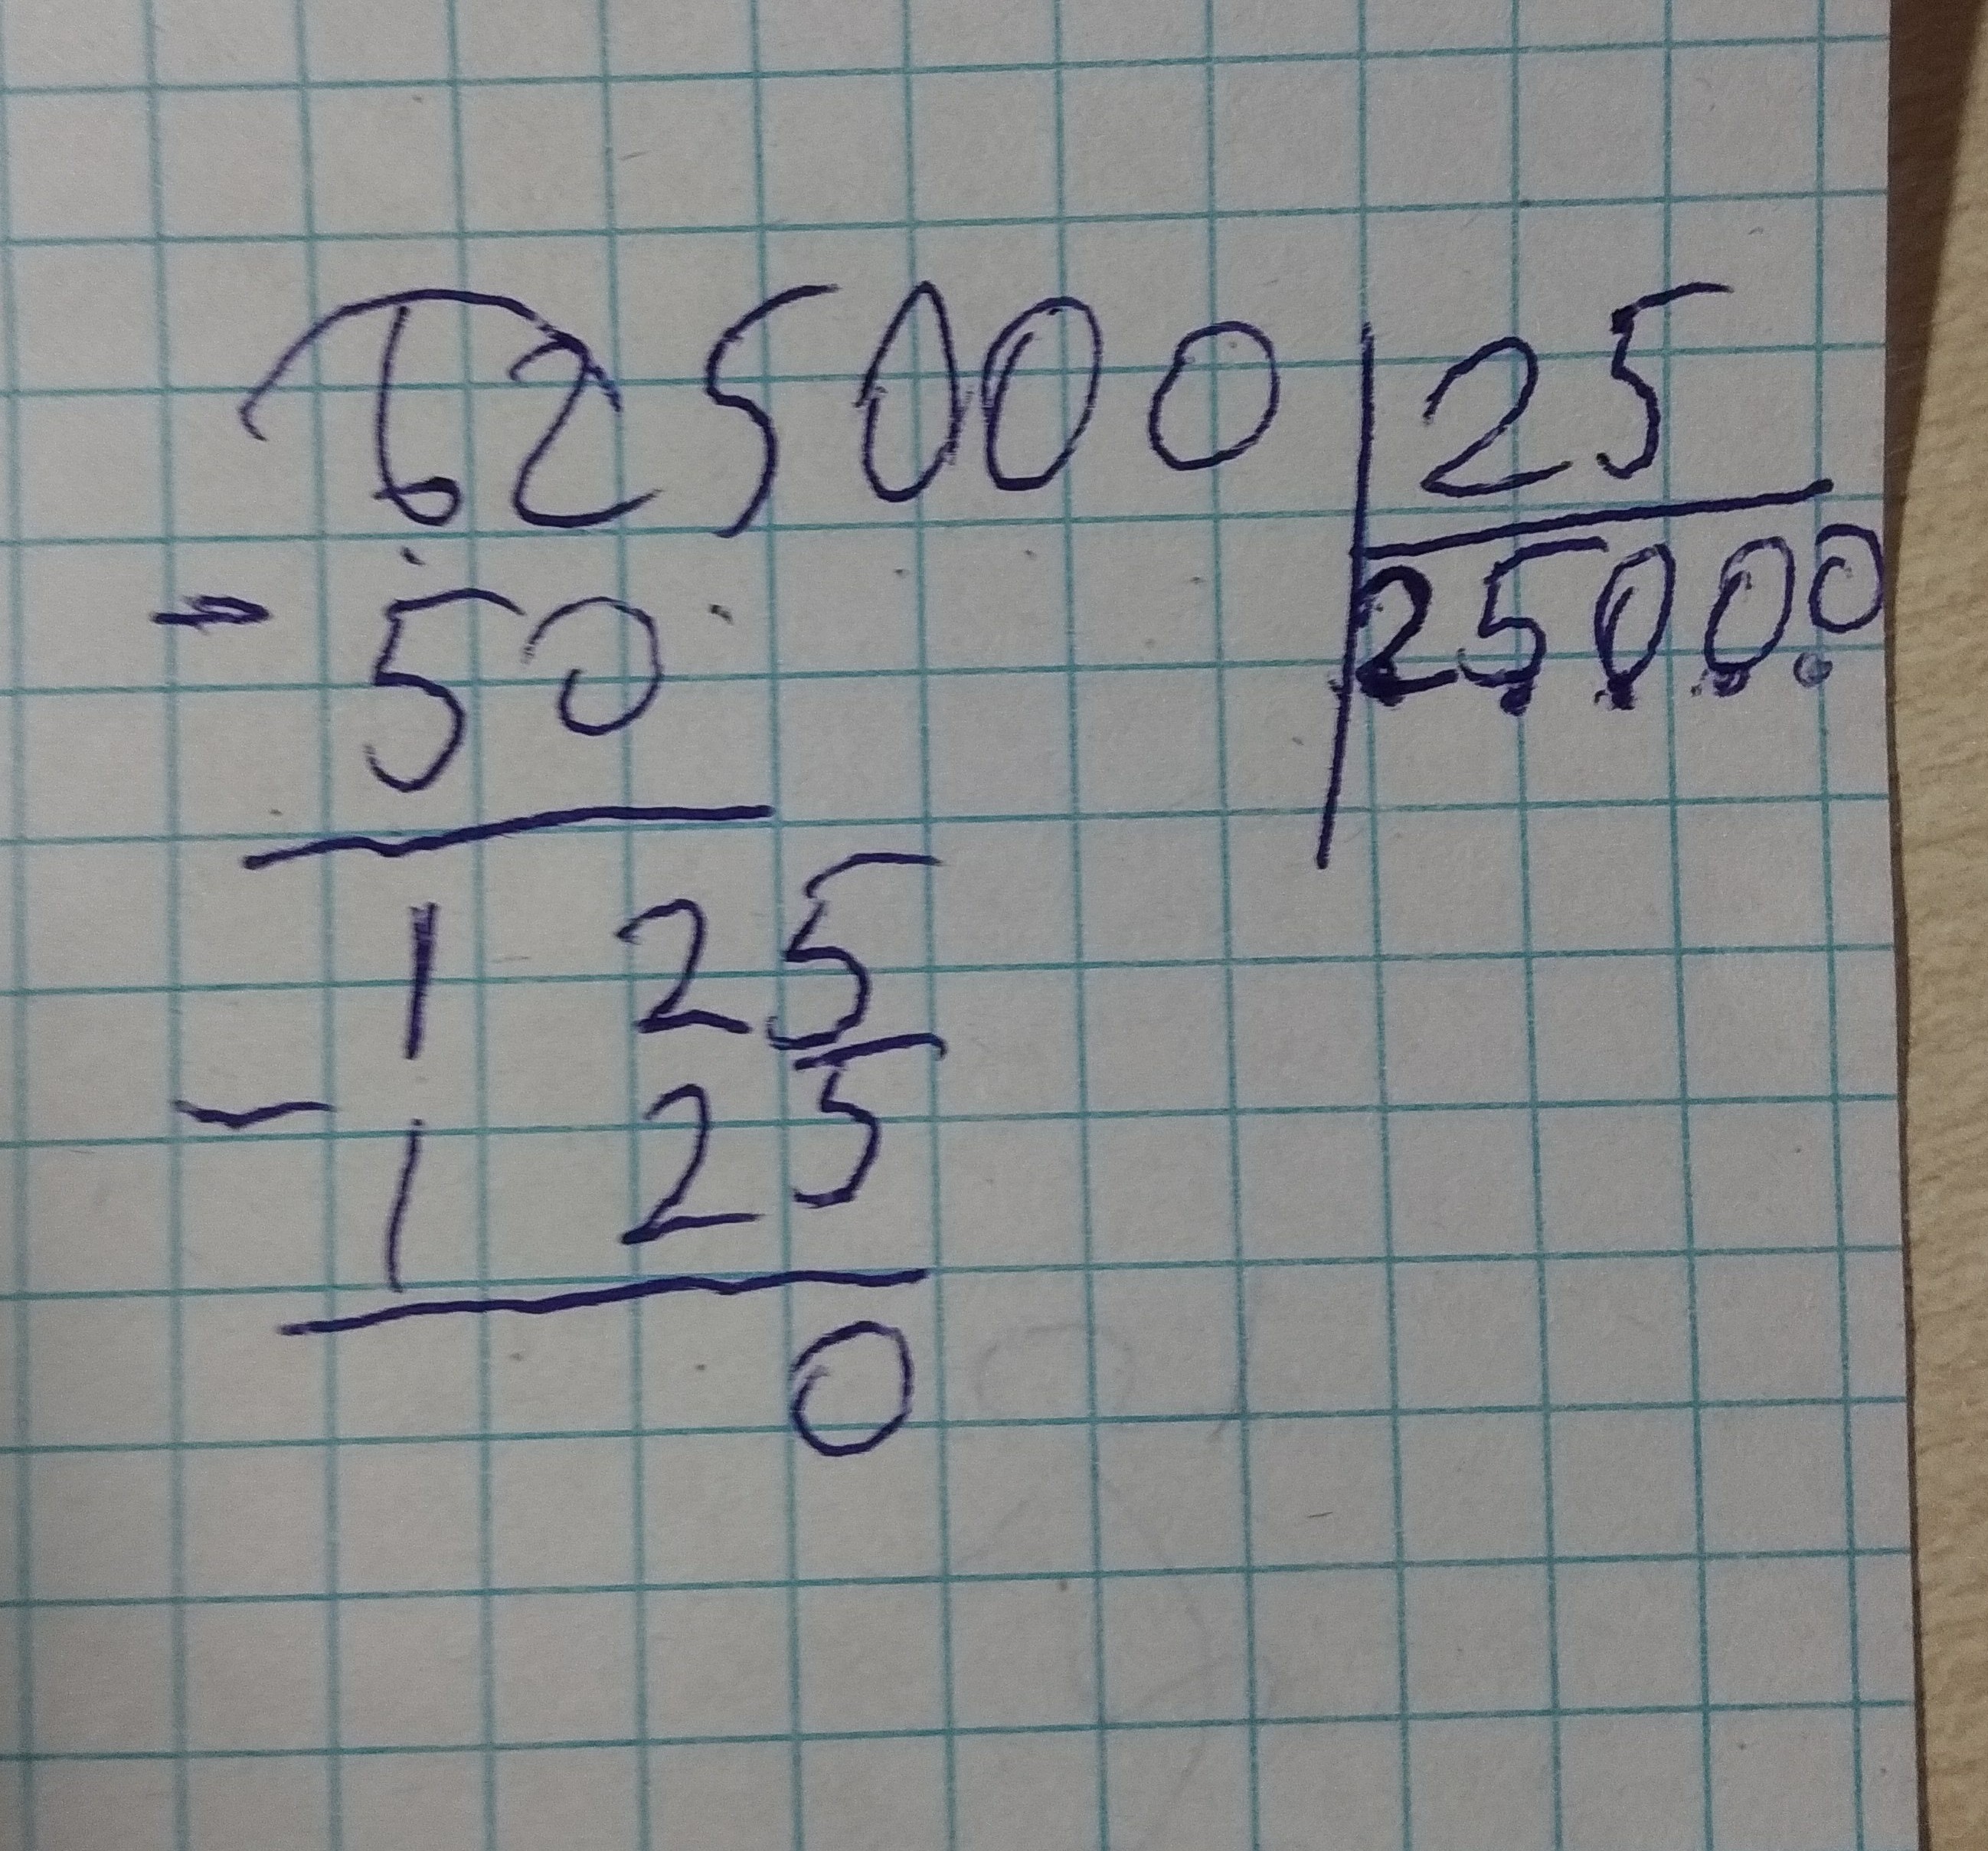 625000 25
- 50 25000
125
- 125
0